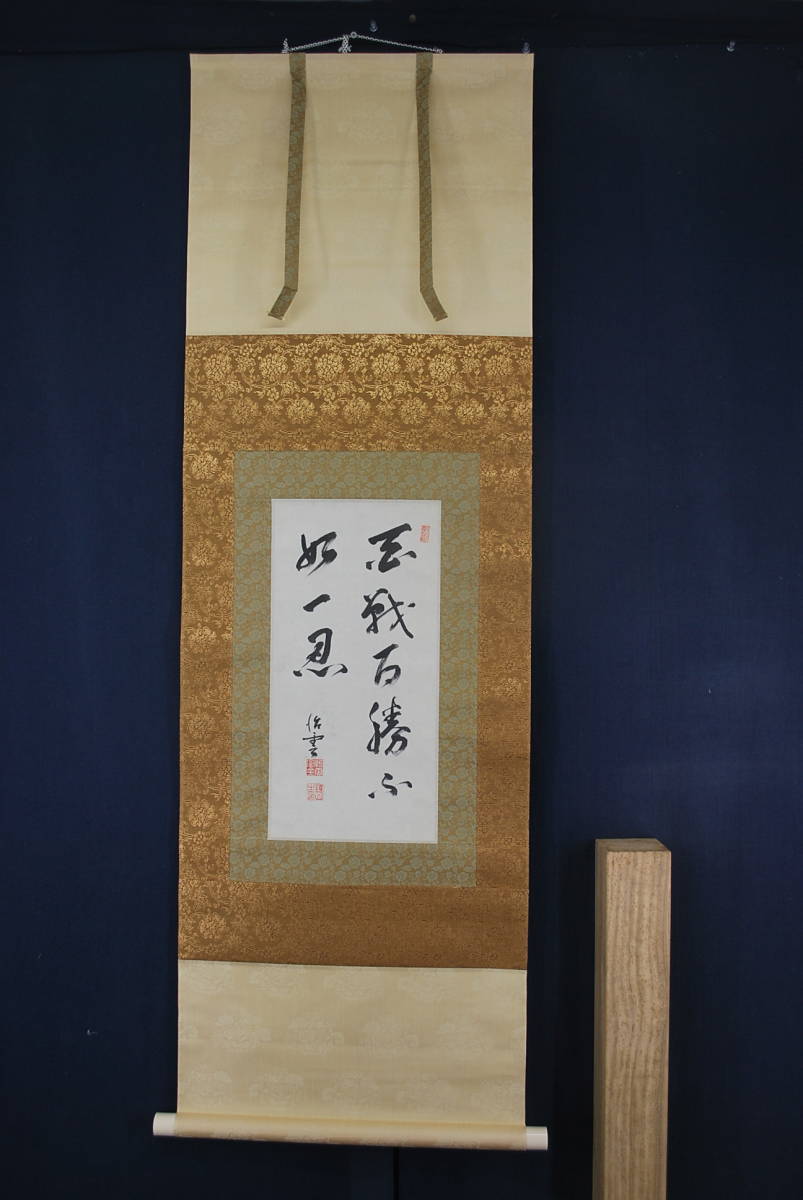 百戦百勝不
如一忍